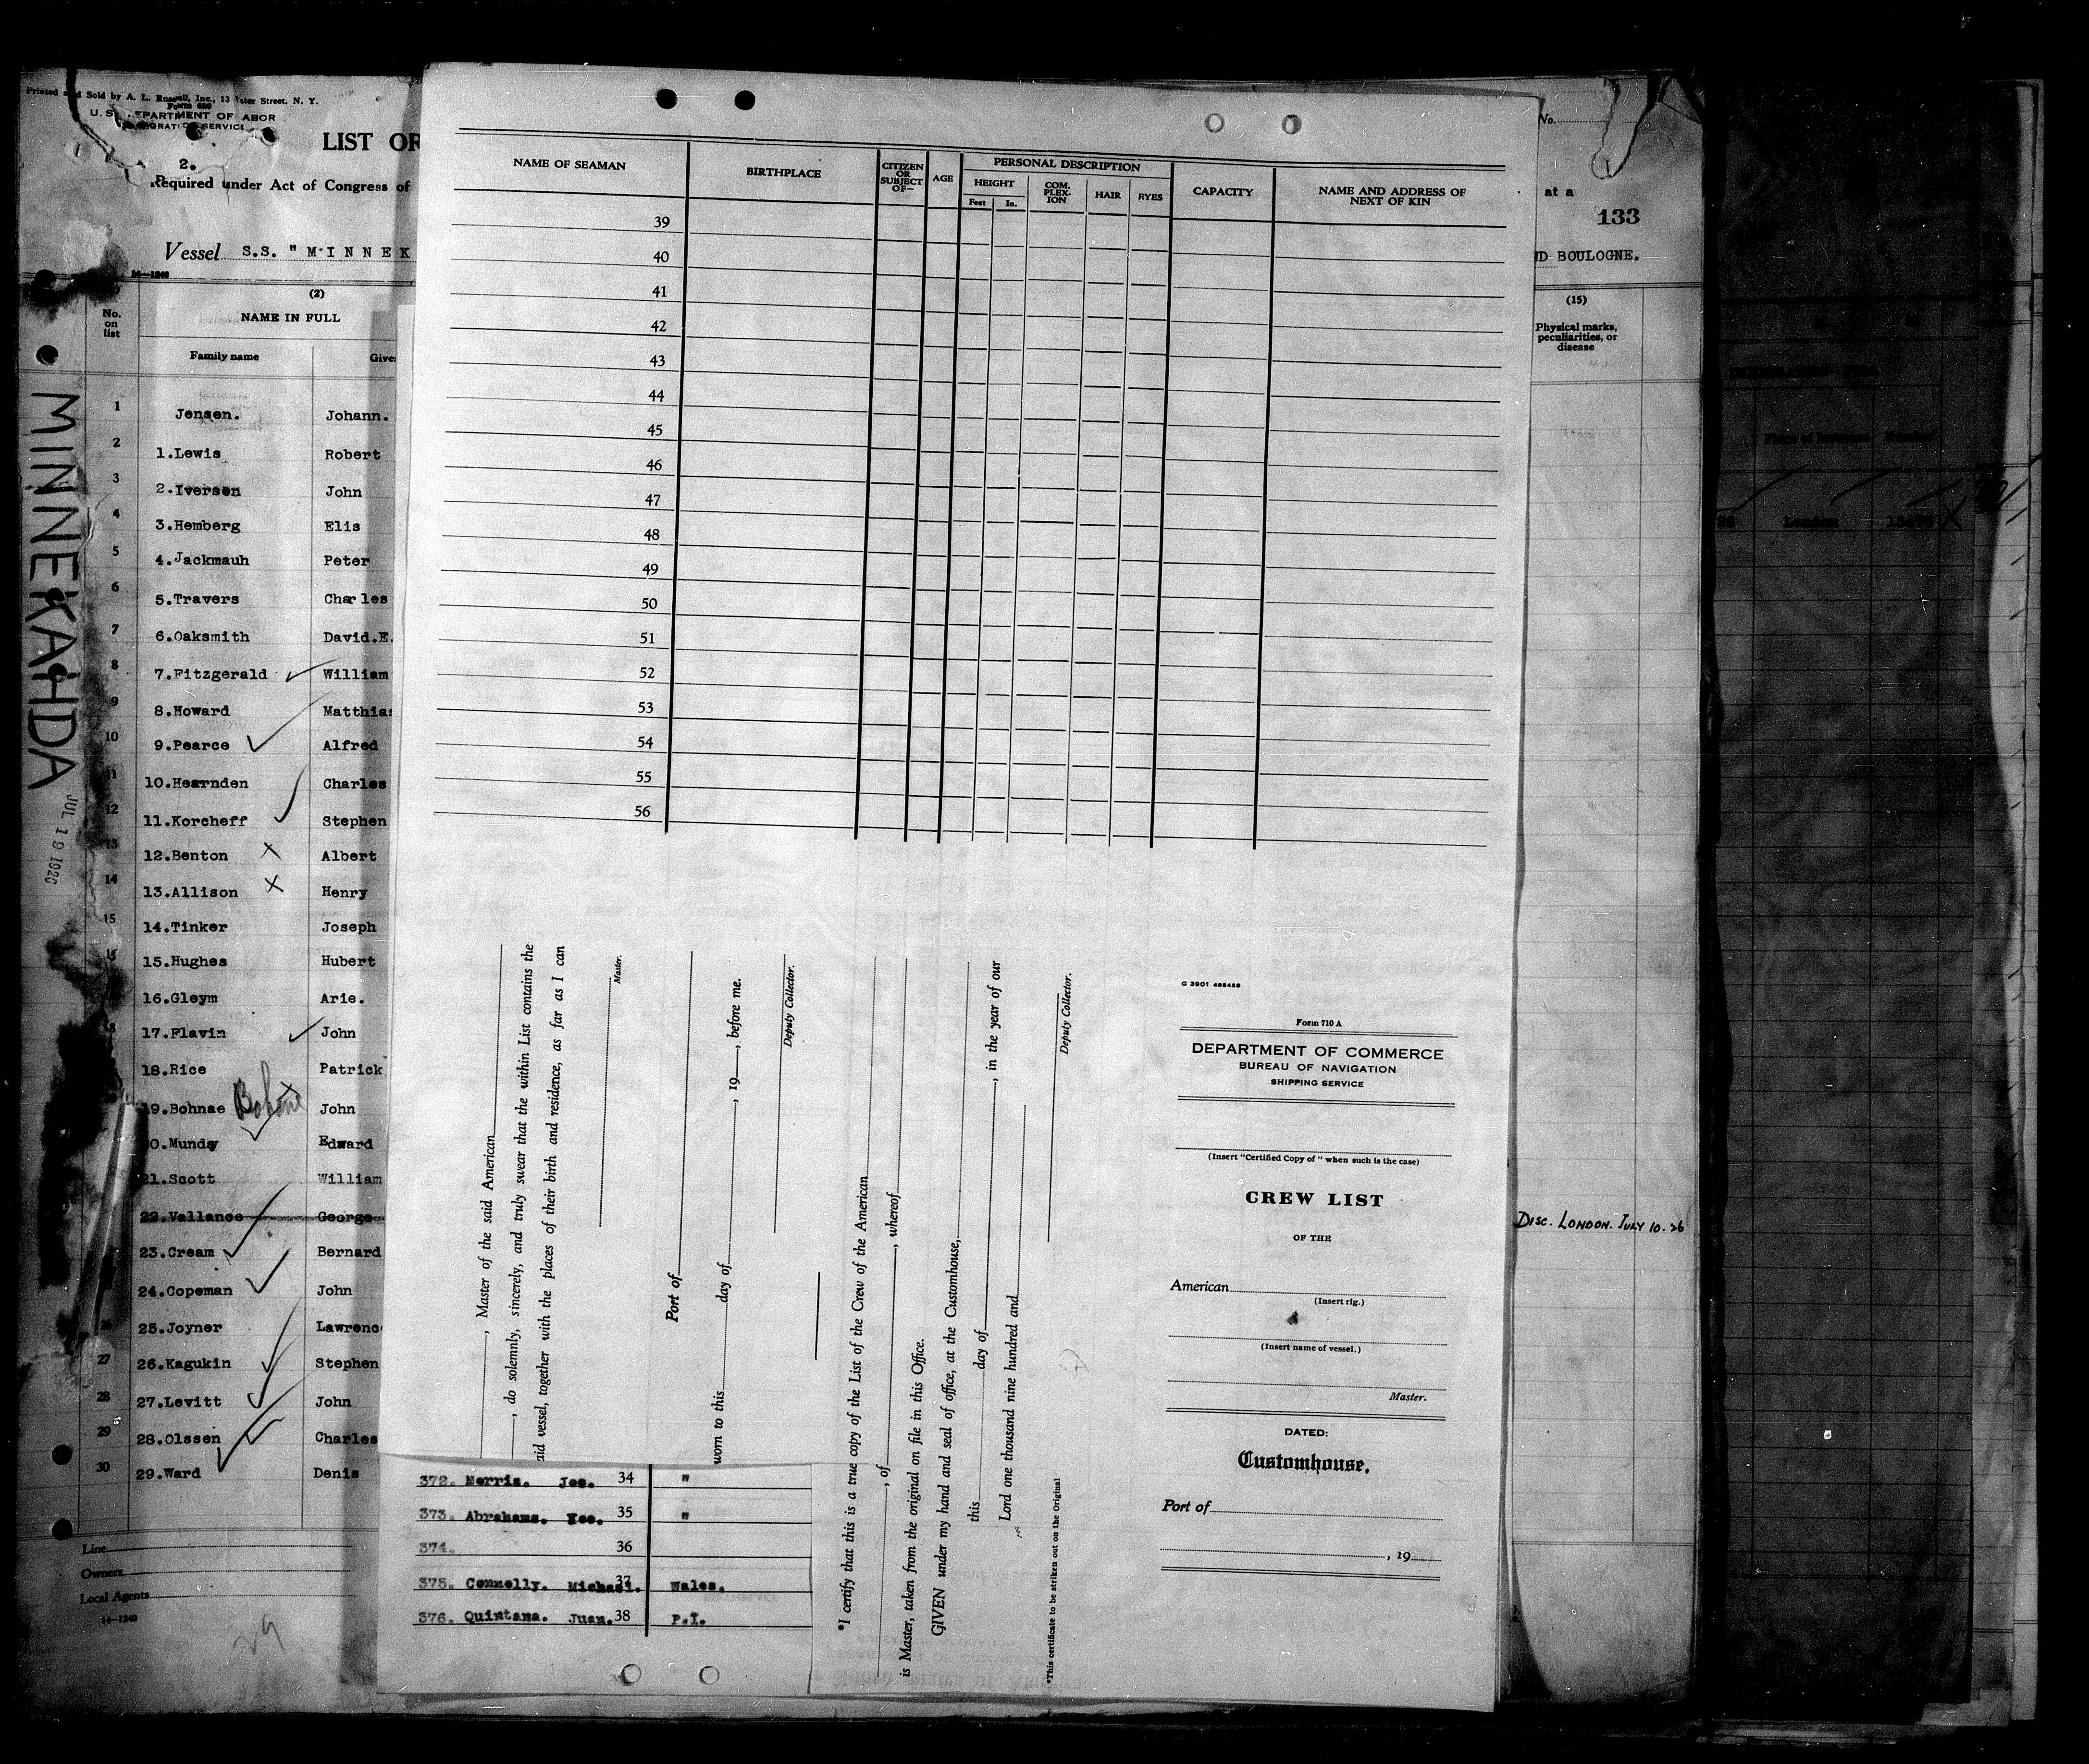 Printed and Sold by A. L. Russell, Inc., 13 Water Street, N. Y.
Form 680
U. S. DEPARTMENT OF LABOR
IMMIGRATION SERVICE
LIST OR
2.
Required under Act of Congress of
Vessel S.S. "MINNEK
14—1240
(2)
No. on list
NAME IN FULL
Family name Give
MINNEKAHDA
JUL 19 1926
1 Jensen. Johann.
2 1.Lewis Robert
3 2.Iversen John
4 3.Hemberg Elis
5 4.Jackmauh Peter
6 5.Travers Charles
7 6.Oaksmith David.E.
8 7.Fitzgerald William
9 8.Howard Matthias
10 9.Pearce Alfred
11 10.Hearnden Charles
12 11.Korcheff Stephen
13 12.Benton Albert
14 13.Allison Henry
15 14.Tinker Joseph
16 15.Hughes Hubert
16.Gleym Arie.
18 17.Flavin John
18.Rice Patrick
19.Bohnae Bohne John
0.Munday Edward
21.Scott William
22.Vallance George
23.Cream Bernard
24.Copeman John
26 25.Joyner Lawrenc
27 26.Kagukin Stephen
28 27.Levitt John
29 28.Olssen Charles
30 29.Ward Denis
Line
Owners
Local Agents
14—1240
29
NAME OF SEAMAN
BIRTHPLACE
CITIZEN OR SUBJECT OF—
AGE
PERSONAL DESCRIPTION
HEIGHT
Feet In.
COM- PLEX- ION
HAIR
EYES
CAPACITY
NAME AND ADDRESS OF NEXT OF KIN
39
40
41
42
43
44
45
46
47
48
49
50
51
52
53
54
55
56
, Master of the said American
, do solemnly, sincerely, and truly swear that the within List contains the
aid vessel, together with the places of their birth and residence, as far as I can
Master.
Port of
worn to this day of , 19 , before me.
Deputy Collector.
*I certify that this is a true copy of the List of the Crew of the American
, of , whereof
is Master, taken from the original on file in this Office.
GIVEN under my hand and seal of office, at the Customhouse,
this day of , in the year of our
Lord one thousand nine hundred and
Deputy Collector.
*This certificate to be striken out on the Original
G 3901 488428
Form 710 A
DEPARTMENT OF COMMERCE
BUREAU OF NAVIGATION
SHIPPING SERVICE
(Insert "Certified Copy of" when such is the case)
CREW LIST
OF THE
American
(Insert rig.)
(Insert name of vessel.)
Master.
DATED:
Customhouse,
Port of
, 19
372. Morris. Joe. 34 "
373. Abrahams. 35 "
374. 36
375. Connelly. Michael. 37 Wales.
376. Quintana. Juan. 38 P.I.
No.
at a
133
ND BOULOGNE.
(15)
Physical marks, peculiarities, or disease
DISC. LONDON. JULY 10. 26
London